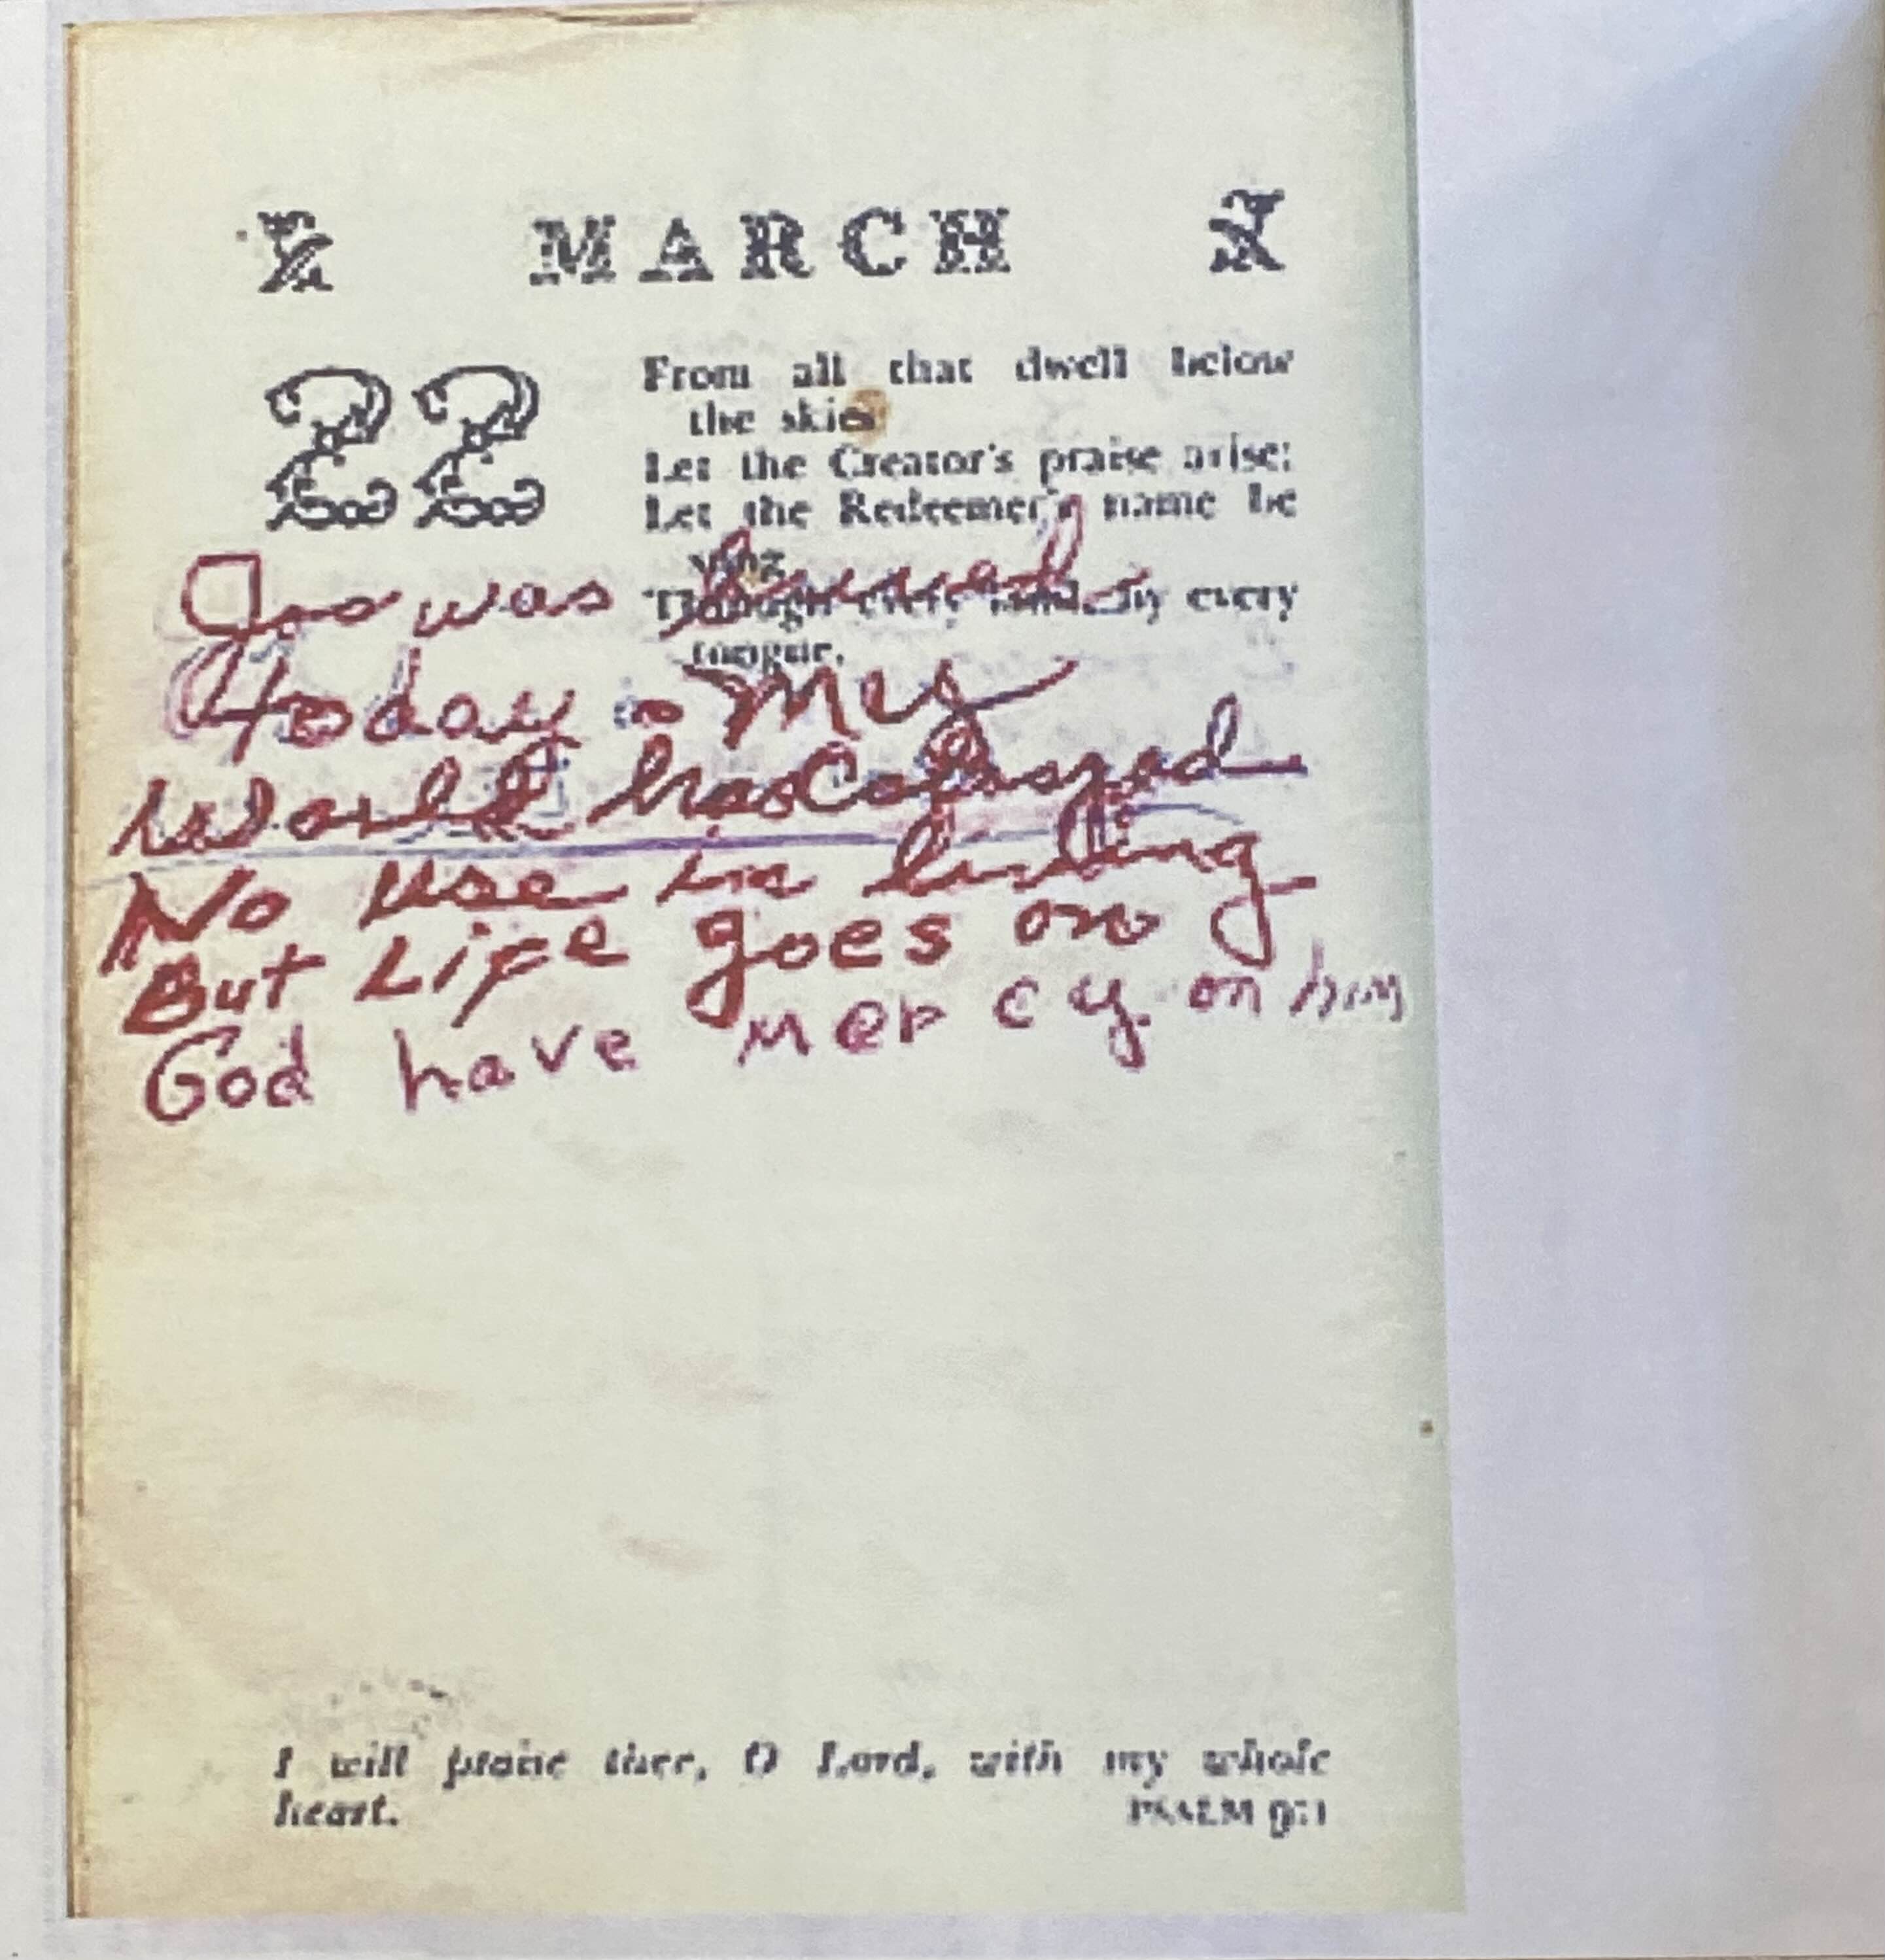 MARCH
22
From all that dwell below
the skies
Let the Creator's praise arise;
Let the Redeemer's name be
every
tongue.
was buried
today - My
World has Colapsed
No use in living
But Life goes on
God have mercy on him
I will praise thee, O Lord, with my whole
heart. PSALM 9:1